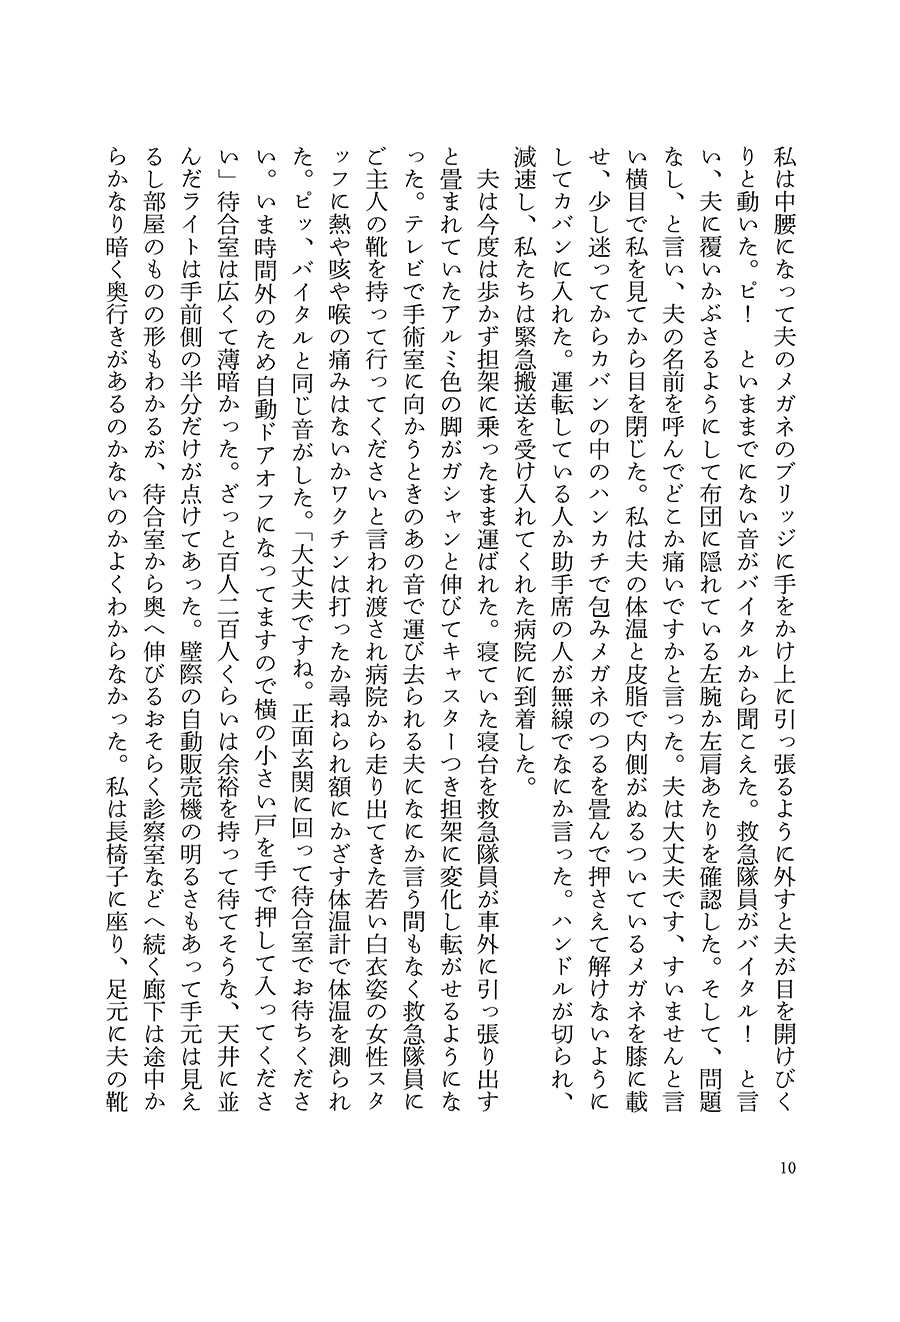 私は中腰になって夫のメガネのブリッジに手をかけ上に引っ張るように外すと夫が目を開けびく
りと動いた。ピ！　といままでにない音がバイタルから聞こえた。救急隊員がバイタル！　と言
い、夫に覆いかぶさるようにして布団に隠れている左腕か左肩あたりを確認した。そして、問題
なし、と言い、夫の名前を呼んでどこか痛いですかと言った。夫は大丈夫です、すいませんと言
い横目で私を見てから目を閉じた。私は夫の体温と皮脂で内側がぬるついているメガネを膝に載
せ、少し迷ってからカバンの中のハンカチで包みメガネのつるを畳んで押さえて解けないように
してカバンに入れた。運転している人か助手席の人が無線でなにか言った。ハンドルが切られ、
減速し、私たちは緊急搬送を受け入れてくれた病院に到着した。
　夫は今度は歩かず担架に乗ったまま運ばれた。寝ていた寝台を救急隊員が車外に引っ張り出す
と畳まれていたアルミ色の脚がガシャンと伸びてキャスターつき担架に変化し転がせるようにな
った。テレビで手術室に向かうときのあの音で運び去られる夫になにか言う間もなく救急隊員に
ご主人の靴を持って行ってくださいと言われ渡され病院から走り出てきた若い白衣姿の女性スタ
ッフに熱や咳や喉の痛みはないかワクチンは打ったか尋ねられ額にかざす体温計で体温を測られ
た。ピッ、バイタルと同じ音がした。「大丈夫ですね。正面玄関に回って待合室でお待ちくださ
い。いま時間外のため自動ドアオフになってますので横の小さい戸を手で押して入ってくださ
い」待合室は広くて薄暗かった。ざっと百人二百人くらいは余裕を持って待てそうな、天井に並
んだライトは手前側の半分だけが点けてあった。壁際の自動販売機の明るさもあって手元は見え
るし部屋のものの形もわかるが、待合室から奥へ伸びるおそらく診察室などへ続く廊下は途中か
らかなり暗く奥行きがあるのかないのかよくわからなかった。私は長椅子に座り、足元に夫の靴
10